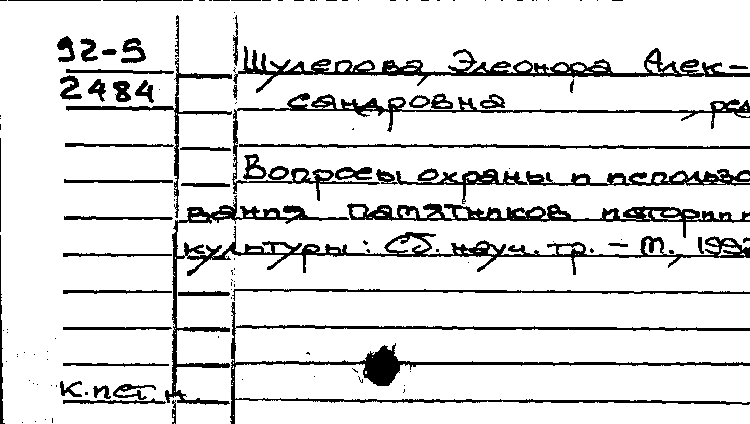 92-5
2484
Шулепова, Элеонора Алек-
сандровна , ред
Вопросы охраны и использо
вания памятников истории и
культуры: Сб. науч. тр. - М., 1992
К.ист.н.